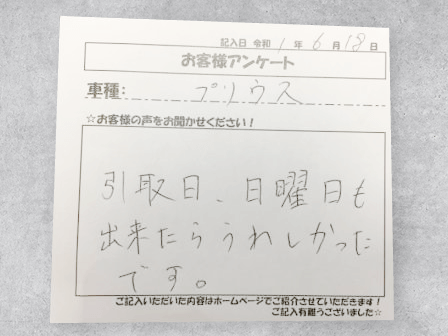 記入日 令和 1 年 6 月 18 日
お客様アンケート
車種: プリウス
☆お客様の声をお聞かせください!
引取日、日曜日も
出来たらうれしかった
です。
ご記入いただいた内容はホームページでご紹介させていただきます!
ご記入有難うございました☆